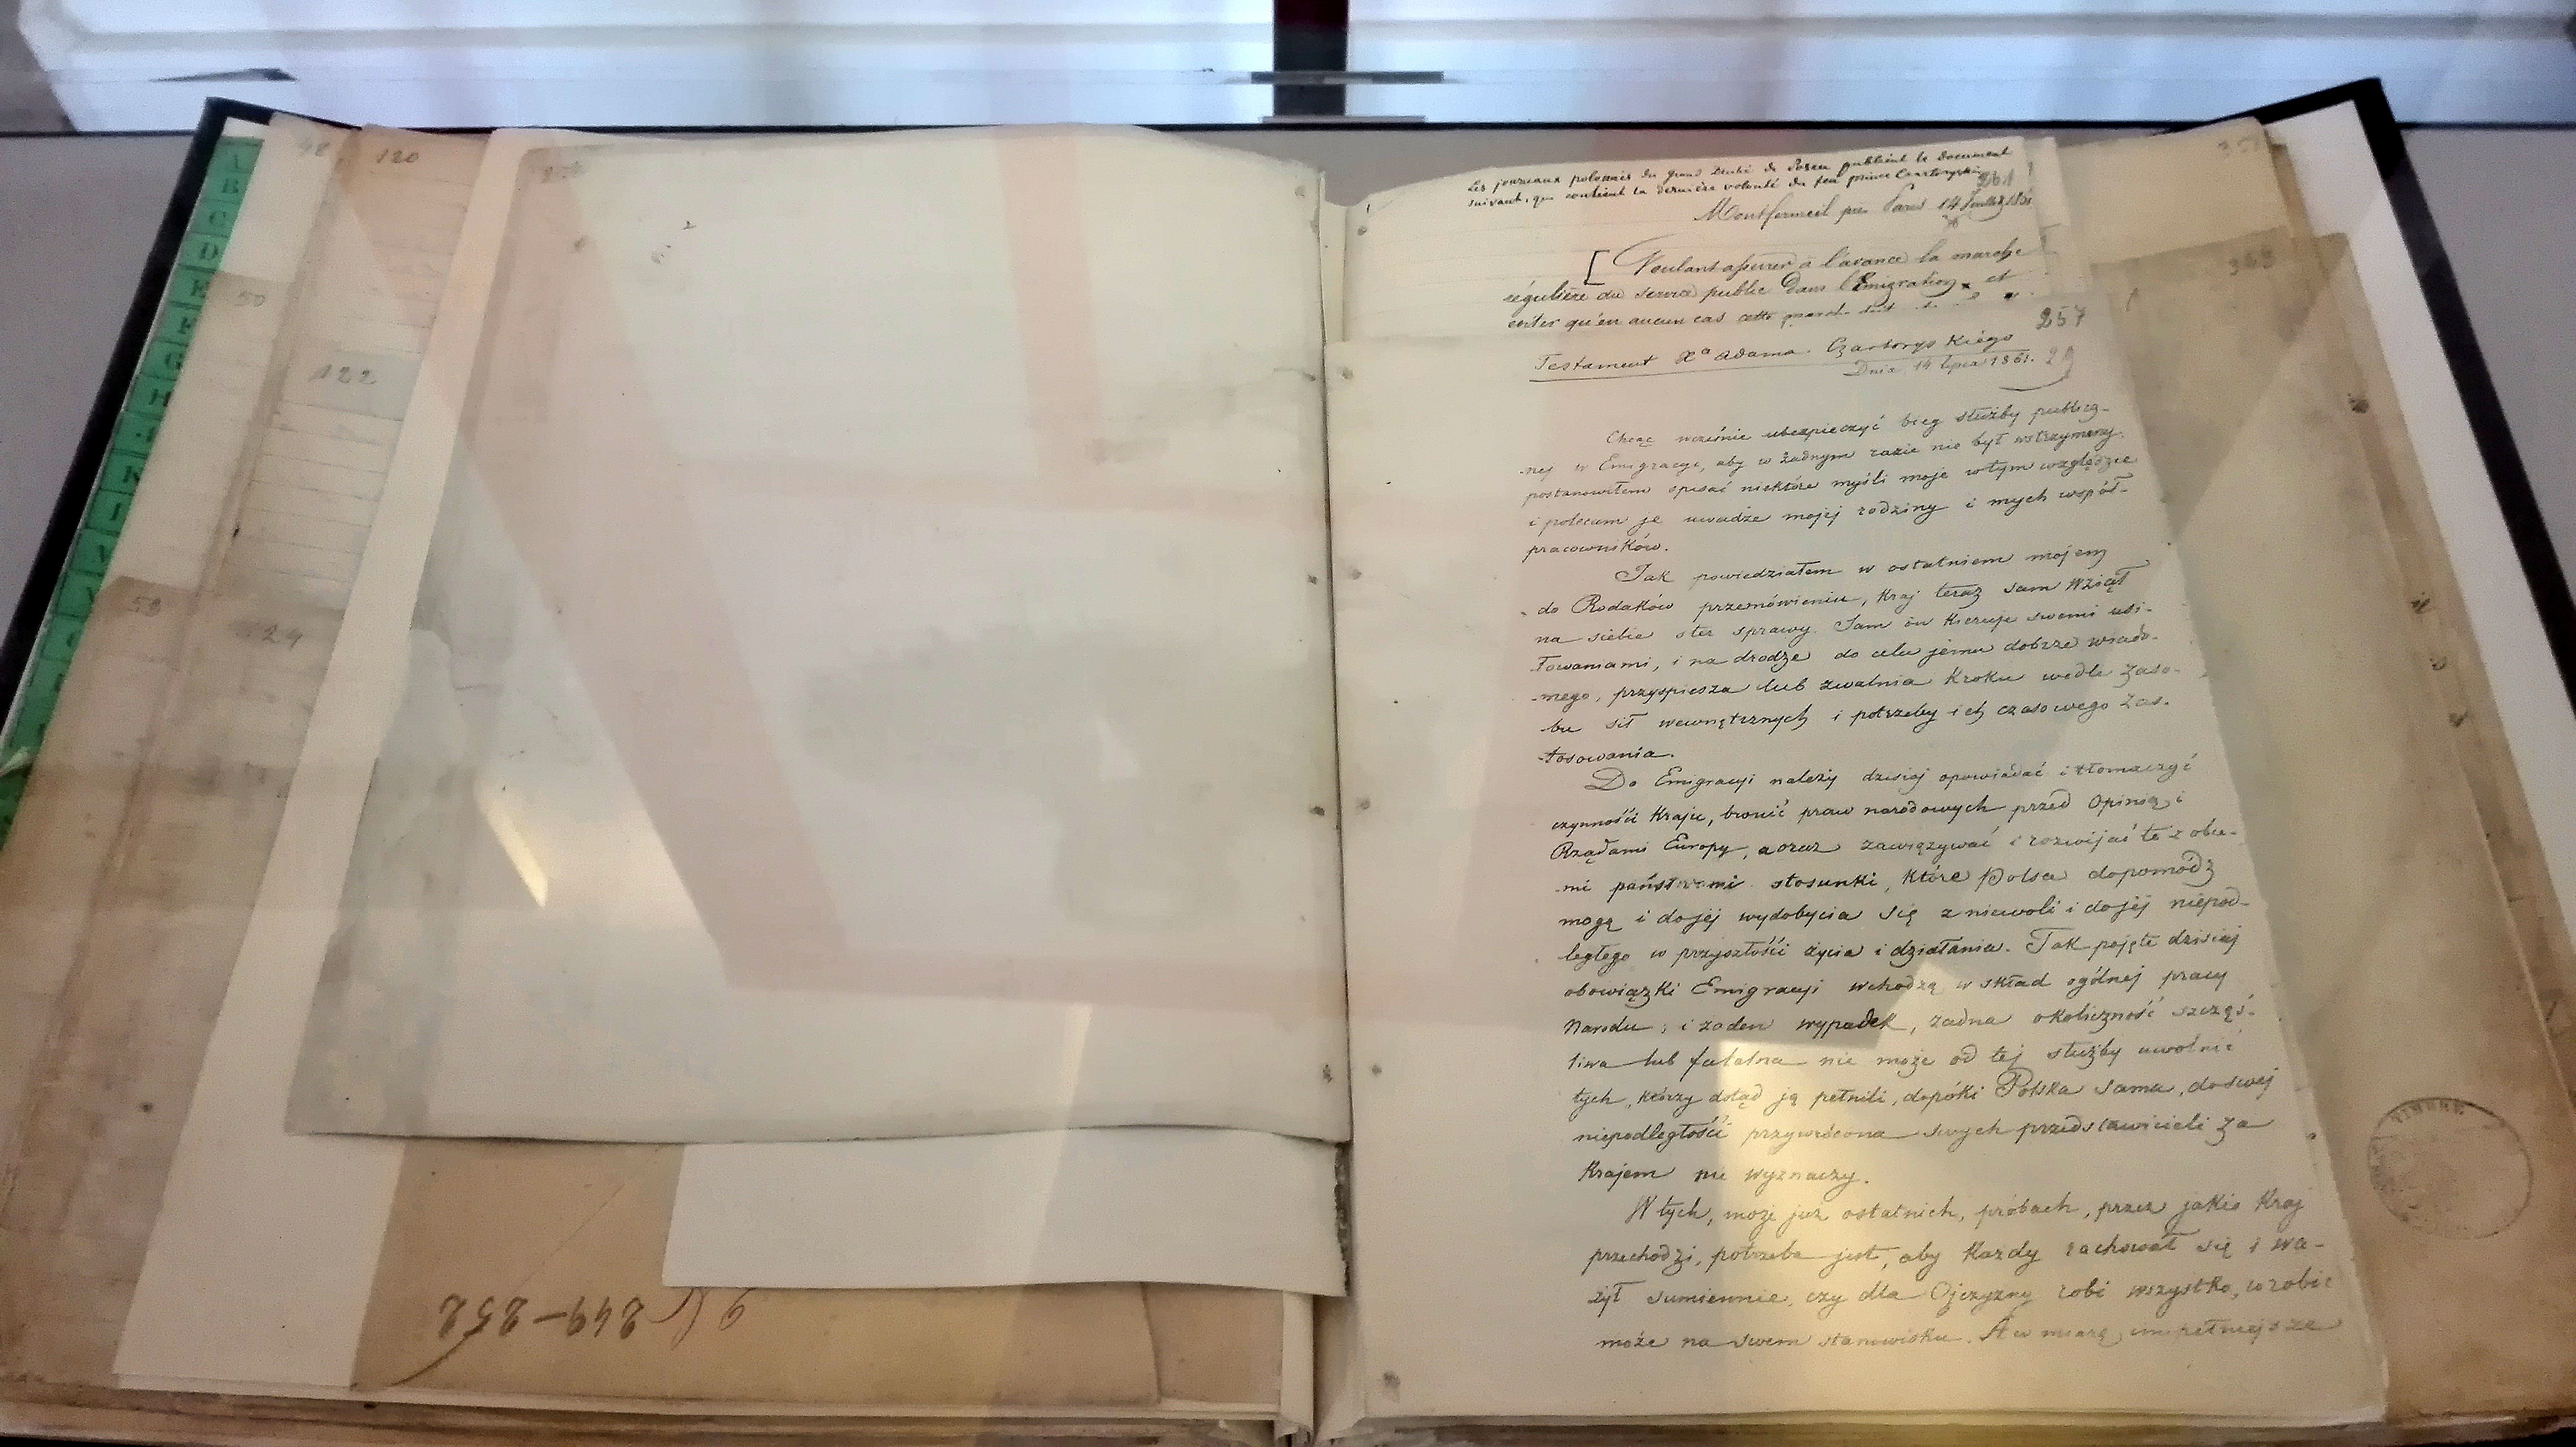 A
B
C
D
E
F
G
H
K
50
120
122
124
58
249-252
Les journaux polonais du Grand Duché de Posen publient le document
suivant, qui contient la dernière volonté du feu prince Czartoryski
261
Montfermeil près Paris 14 Juillet 1861
[ Voulant assurer à l'avance la marche
régulière du service public dans l'Emigration, et
éviter qu'en aucun cas cette
257
Testament Xa Adama Czartoryskiego
Dnia 14 lipca 1861.
Chcąc wcześnie ubezpieczyć bieg służby publicz-
nej w Emigracyi, aby w żadnym razie nie był wstrzymany
postanowiłem spisać niektóre myśli moje w tym względzie
i polecam je uwadze mojej rodziny i mych współ-
pracowników.
Jak powiedziałem w ostatniem mojem
do Rodaków przemówieniu, Kraj teraz sam wziął
na siebie ster sprawy. Sam on kieruje swemi usi-
łowaniami, i na drodze do celu jemu dobrze wiado-
mego, przyspiesza lub zwalnia kroku wedle zaso-
bu sił wewnętrznych i potrzeby ich czasowego zas-
tosowania.
Do Emigracyi należy dzisiaj opowiadać i tłomaczyć
czynności Kraju, bronić praw narodowych przed Opinią i
Rządami Europy, a oraz zawiązywać i rozwijać te z obce-
mi państwami stosunki, które Polsce dopomódz
mogą i do jéj wydobycia się z niewoli i do jéj niepod-
ległego w przyszłości życia i działania. Tak pojęte dzisiaj
obowiązki Emigracyi wchodzą w skład ogólnej pracy
Narodu; i żaden wypadek, żadna okoliczność szczęś-
liwa lub fatalna nie może od tej służby uwolnić
tych, którzy dotąd ją pełnili, dopóki Polska sama, do swej
niepodległości przywrócona swych przedstawicieli za
Krajem nie wyznaczy.
W tych, może już ostatnich, próbach, przez jakie Kraj
przechodzi, potrzeba jest, aby każdy rachował się i wa-
żył sumiennie, czy dla Ojczyzny robi wszystko, co robić
może na swem stanowisku. A w miarę, im pełniejsze